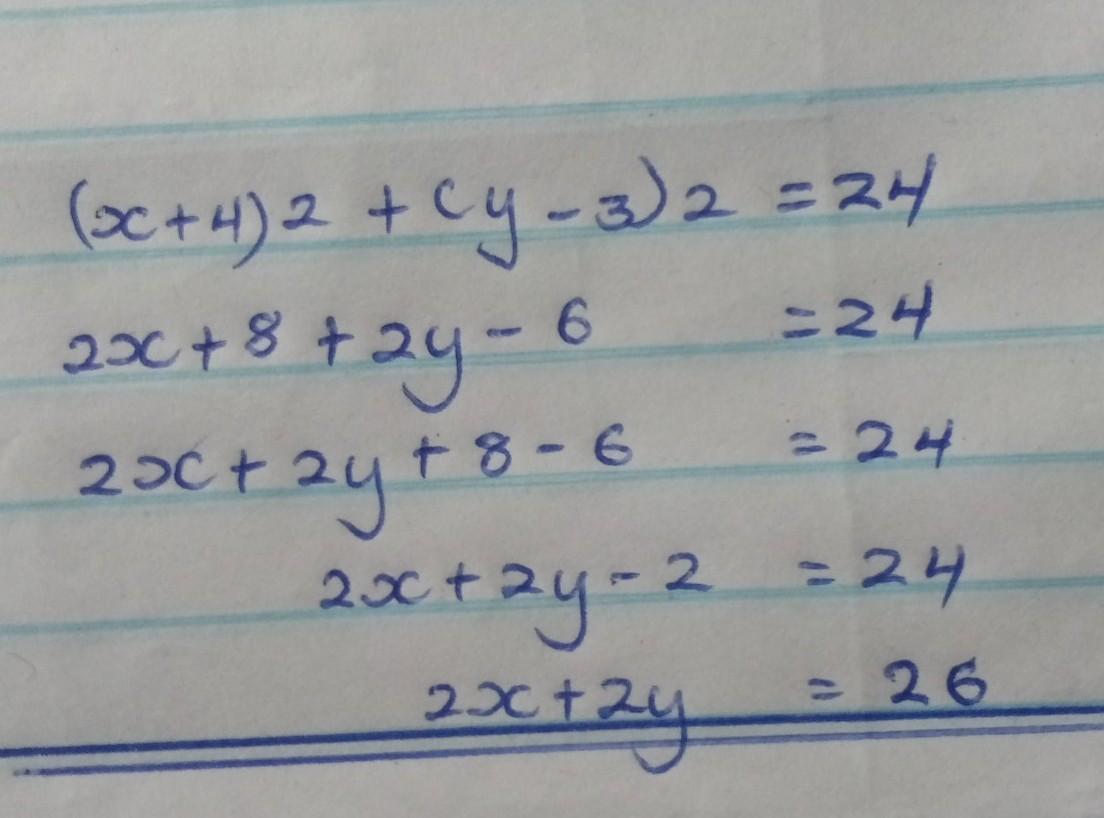 (x+4)2 + (y-3)2 = 24
2x+8+2y-6 = 24
2x+2y+8-6 = 24
2x+2y-2 = 24
2x+2y = 26